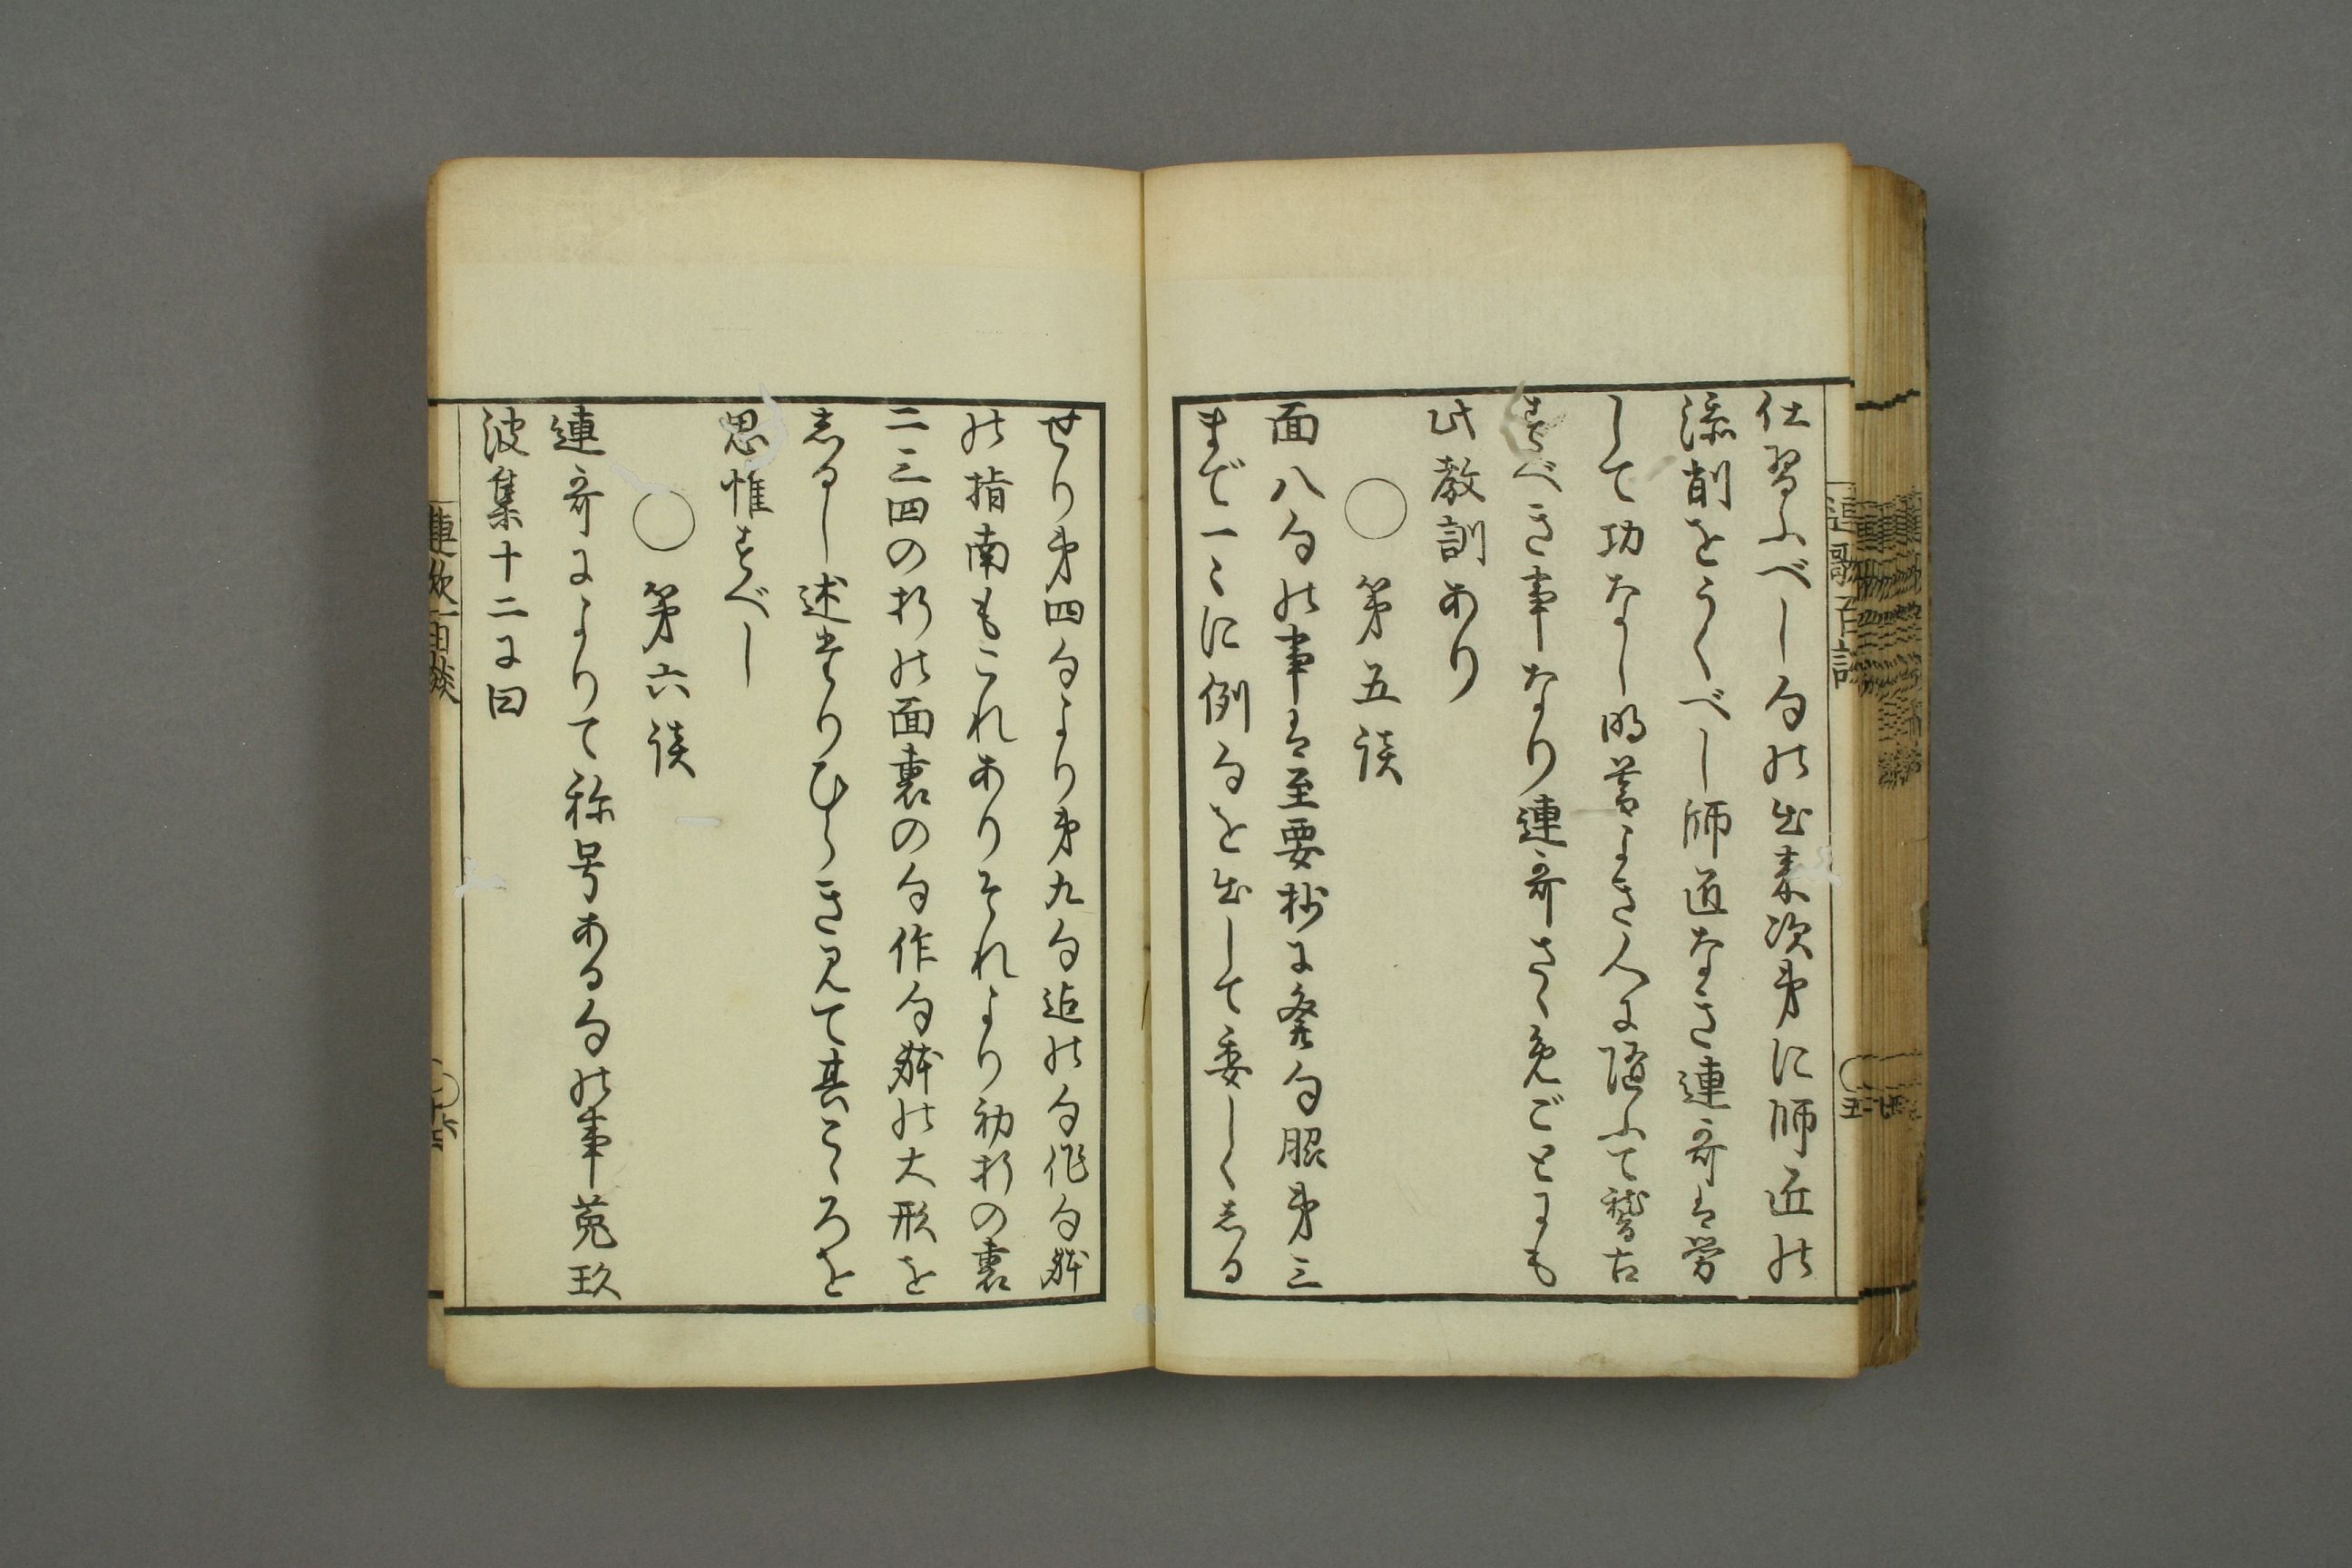 仕習ふべし句の出来次第に師匠の
添削をうくべし師匠なき連哥は労
して功なし時々よき人に随ふて稽古
すべき事なり連哥さく免ごとにも
此教訓あり
○第五談
面八句の事は至要抄に發句脇第三
まで一々に例句を出して委しくしる
せり第四句より第九句迄の句作句躰
の指南もこれありそれより初折の裏
二三四の折の面裏の句作句躰の大形を
しるし述たりひらき見て其こゝろを
思惟すべし
○第六談
連哥によりて称号ある句の事菟玖
波集十二に曰